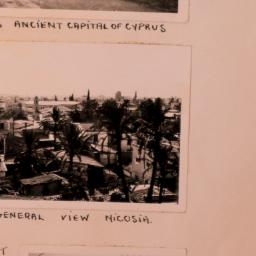 ANCIENT CAPITAL OF CYPRUS
GENERAL VIEW NICOSIA.